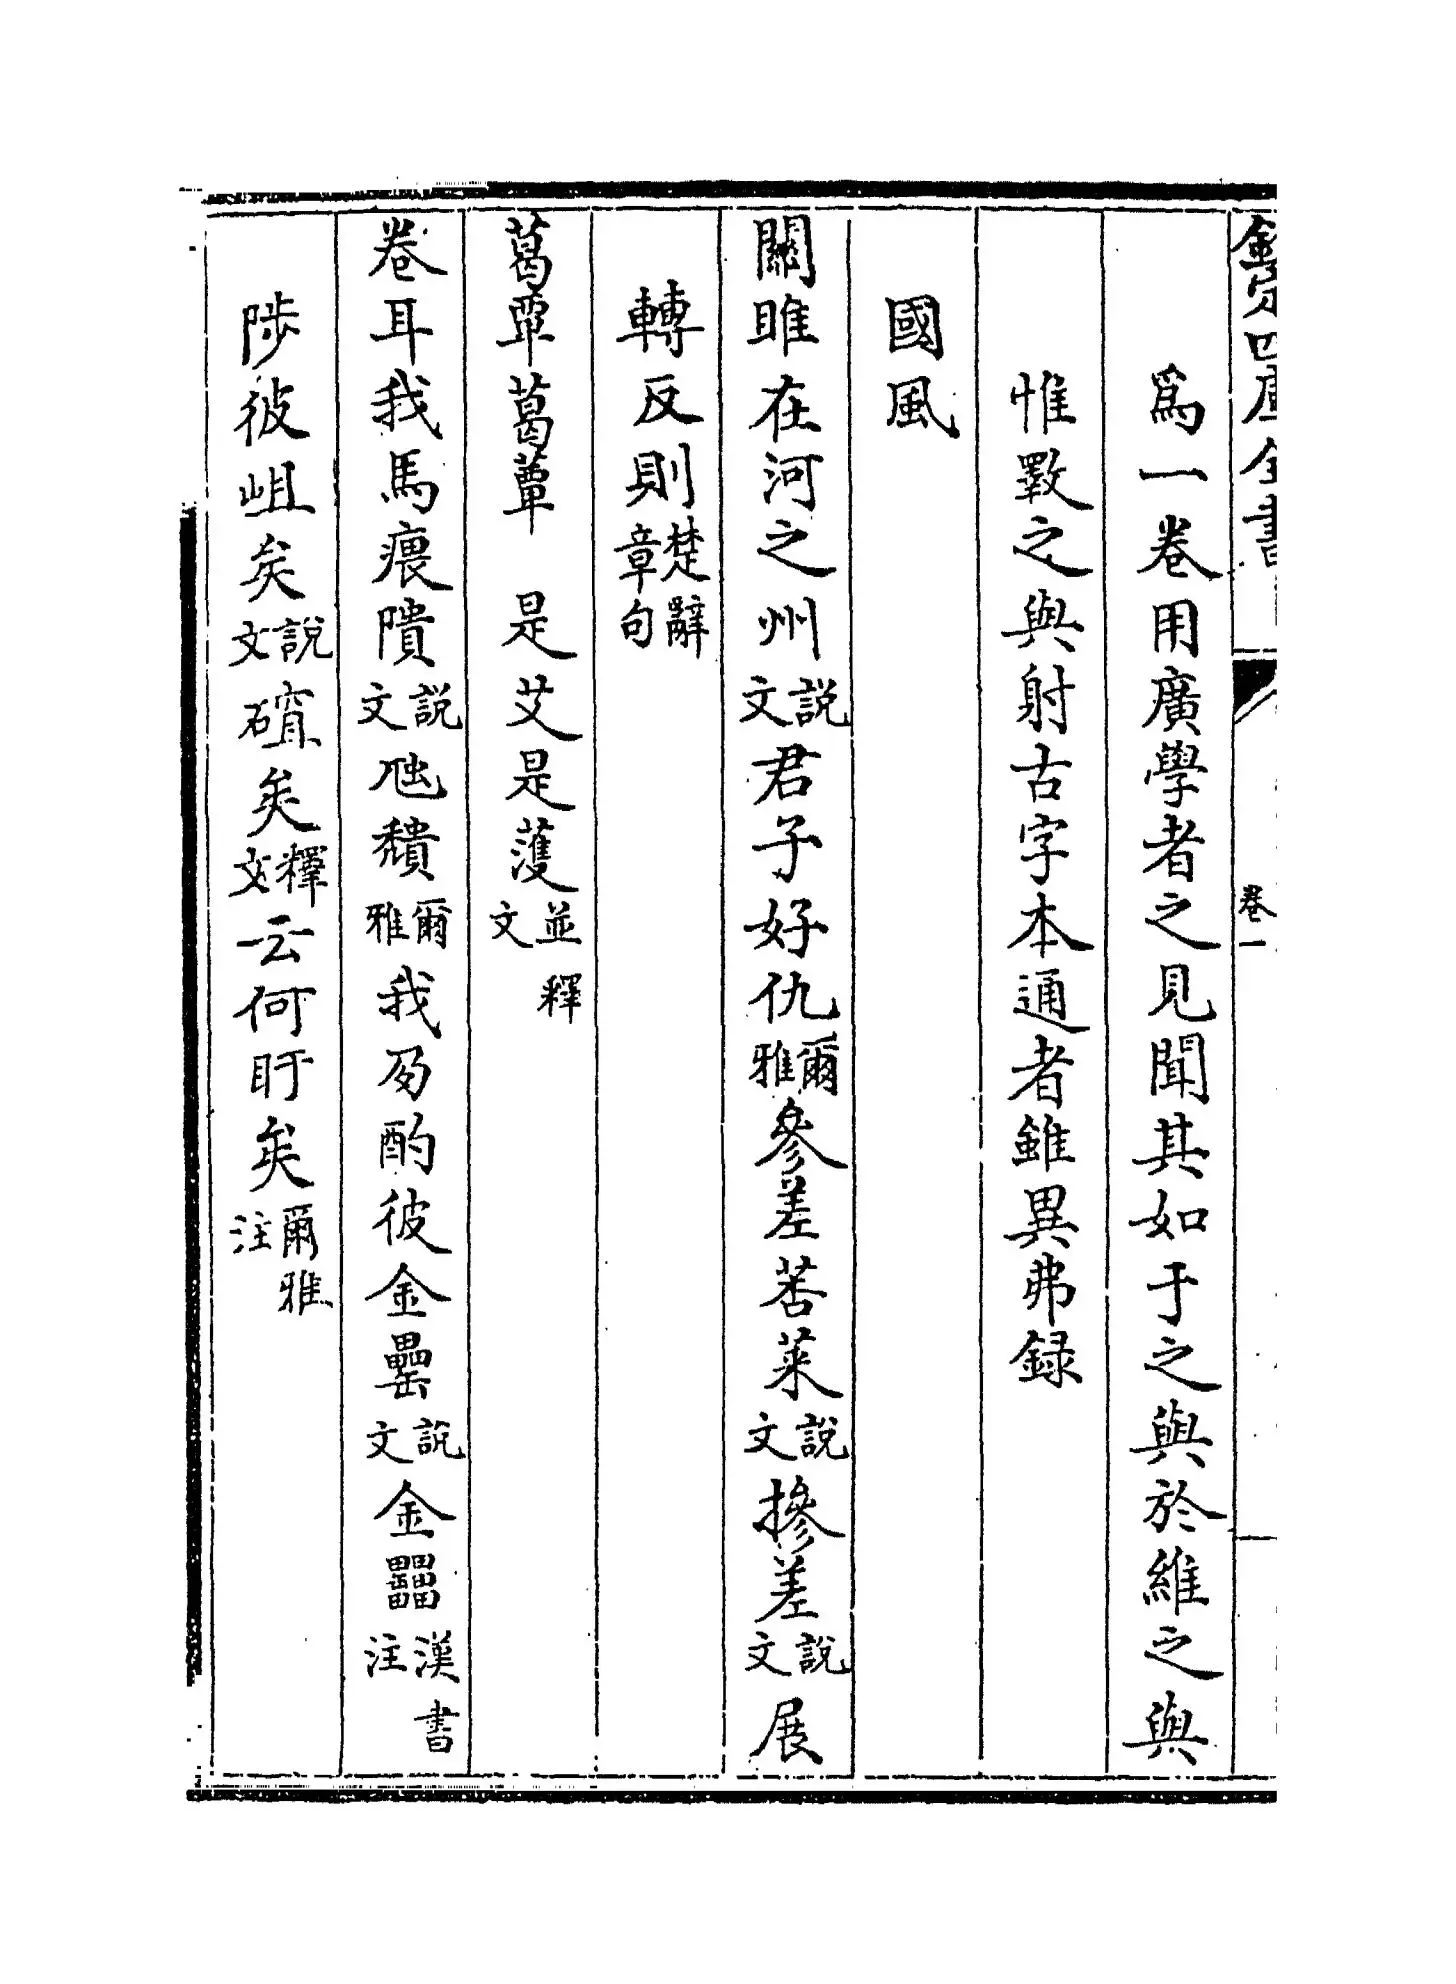 欽定四庫全書　卷一
爲一卷用廣學者之見聞其如于之與於維之與
惟斁之與射古字本通者雖異弗録
國風
關雎在河之州說文君子好仇爾雅參差莕菜說文摻差說文展
轉反則楚辭章句
葛覃葛蕈　是艾是濩並釋文
卷耳我馬㾯隤說文虺穨爾雅我夃酌彼金罍說文金漢書注
陟彼岨矣說文矣釋文云何盱矣爾雅注